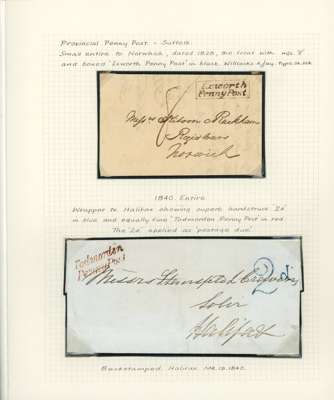 Provincial Penny Post - Suffolk.
Small entire to Norwich, dated 1828, the front with ms. '8'
and boxed 'Ixworth Penny Post' in black. Willcocks & Jay. Type
Ixworth
Penny Post
8
Messrs
Registrars
Norwich
1840. Entire
Wrapper to Halifax showing superb handstruck '2d'
in blue and equally fine 'Todmorden Penny Post' in red.
The '2d' applied as 'postage due'.
Todmorden
Penny Post
2d
Messrs
Solrs
Halifax
Backstamped, Halifax MR. 10. 1840.